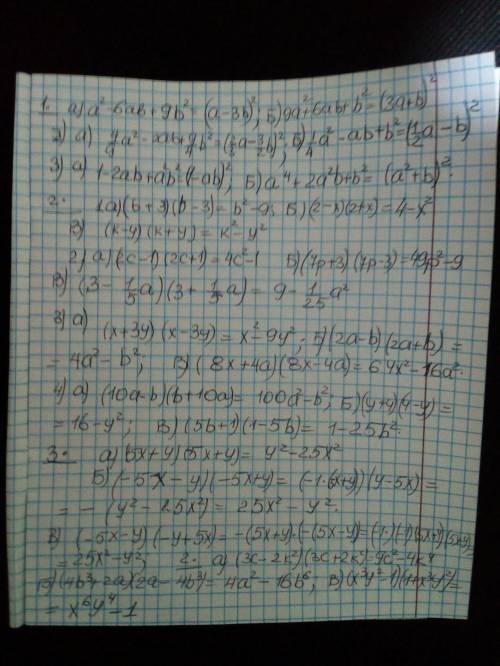 1. а) a² - 6ab + 9b² = (a-3b)²; Б) 9a² + 6ab + b² = (3a+b)²
2) а) a² - ab + b² = (a - b)²; Б) 1/4 a² - ab + b² = (1/2 a - b)²
3) а) 1 - 2ab + a²b² = (1-ab)²; Б) a⁴ + 2a²b + b² = (a² + b)².
2. 1а) (b+3)(b-3) = b² - 9; Б) (2-x)(2+x) = 4-x²
В) (k-y)(k+y) = k² - y²
2) а) (2c-1)(2c+1) = 4c²-1 Б) (7p+3)(7p-3) = 49p²-9
В) (3 - 1/5 a)(3 + 1/5 a) = 9 - 1/25 a²
3) а) (x+3y)(x-3y) = x² - 9y²; Б) (2a-b)(2a+b) =
= 4a² - b²; В) (8x+4a)(8x-4a) = 64x² - 16a².
4) а) (10a-b)(b+10a) = 100a² - b²; Б) (y+4)(4-y) =
= 16-y²; В) (5b+1)(1-5b) = 1-25b².
3. а) (5x+y)(5x+y) = y² - 25x²
Б) (-5x-y)(-5x+y) = (-1·(5x+y))(y-5x) =
= -(y² - 25x²) = 25x² - y².
В) (-5x-y)(-y+5x) = -(5x+y)·(-(5x-y)) = (-1)·(-1)(5x+y)
= 25x² - y²; 2. а) (3c-2k²)(3c+2k²) = 9c² - 4k⁴
Б) (4b³+2a)(2a-4b³) = 4a² - 16b⁶; В) (x³y²-1)(1+x³y²) =
= x⁶y⁴-1